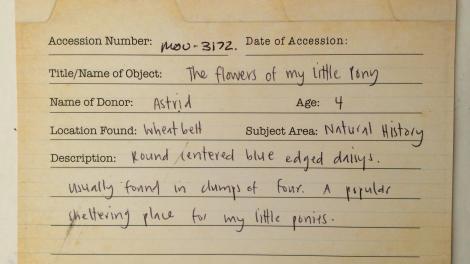 Accession Number: MOU-3172. Date of Accession:
Title/Name of Object: The flowers of my little Pony
Name of Donor: Astrid Age: 4
Location Found: Wheatbelt Subject Area: Natural History
Description: Round centered blue edged daisys.
usually found in clumps of four. A popular
sheltering place for my little ponies.